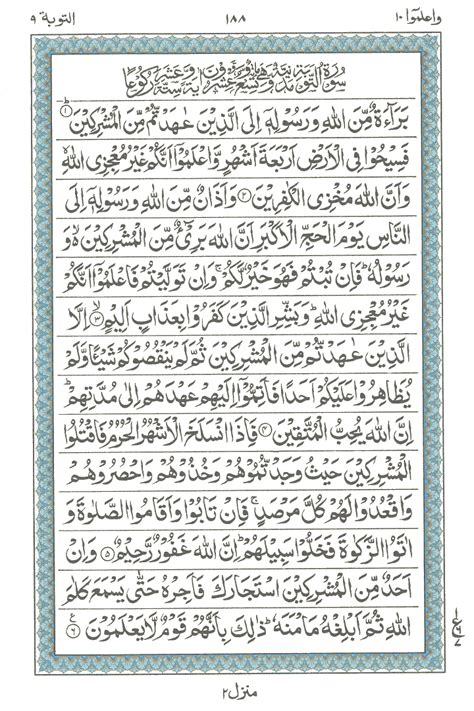 واعلموآ ١٠ ١٨٨ التوبة ٩
سورة التوبة مدنية وهي مائة وتسع وعشرون اية وستة عشر ركوعا
بَرَآءَةٌ مِّنَ اللّٰهِ وَرَسُوْلِهٖٓ اِلَى الَّذِيْنَ عٰهَدْتُّمْ مِّنَ الْمُشْرِكِيْنَ ۟ؕ۱
فَسِيْحُوْا فِي الْاَرْضِ اَرْبَعَةَ اَشْهُرٍ وَّاعْلَمُوْٓا اَنَّكُمْ غَيْرُ مُعْجِزِي اللّٰهِ ۙ
وَاَنَّ اللّٰهَ مُخْزِي الْكٰفِرِيْنَ ۟۲ وَاَذَانٌ مِّنَ اللّٰهِ وَرَسُوْلِهٖٓ اِلَى
النَّاسِ يَوْمَ الْحَجِّ الْاَكْبَرِ اَنَّ اللّٰهَ بَرِيْٓءٌ مِّنَ الْمُشْرِكِيْنَ ۙ۬ وَ
رَسُوْلُهٗ ؕ فَاِنْ تُبْتُمْ فَهُوَ خَيْرٌ لَّكُمْ ۚ وَاِنْ تَوَلَّيْتُمْ فَاعْلَمُوْٓا اَنَّكُمْ
غَيْرُ مُعْجِزِي اللّٰهِ ؕ وَبَشِّرِ الَّذِيْنَ كَفَرُوْا بِعَذَابٍ اَلِيْمٍ ۟ۙ۳ اِلَّا
الَّذِيْنَ عٰهَدْتُّمْ مِّنَ الْمُشْرِكِيْنَ ثُمَّ لَمْ يَنْقُصُوْكُمْ شَيْـًٔا وَّلَمْ
يُظَاهِرُوْا عَلَيْكُمْ اَحَدًا فَاَتِمُّوْٓا اِلَيْهِمْ عَهْدَهُمْ اِلٰى مُدَّتِهِمْ ؕ
اِنَّ اللّٰهَ يُحِبُّ الْمُتَّقِيْنَ ۟۴ فَاِذَا انْسَلَخَ الْاَشْهُرُ الْحُرُمُ فَاقْتُلُوا
الْمُشْرِكِيْنَ حَيْثُ وَجَدْتُّمُوْهُمْ وَخُذُوْهُمْ وَاحْصُرُوْهُمْ
وَاقْعُدُوْا لَهُمْ كُلَّ مَرْصَدٍ ۚ فَاِنْ تَابُوْا وَاَقَامُوا الصَّلٰوةَ وَ
اٰتَوُا الزَّكٰوةَ فَخَلُّوْا سَبِيْلَهُمْ ؕ اِنَّ اللّٰهَ غَفُوْرٌ رَّحِيْمٌ ۟۵ وَاِنْ
اَحَدٌ مِّنَ الْمُشْرِكِيْنَ اسْتَجَارَكَ فَاَجِرْهُ حَتّٰى يَسْمَعَ كَلٰمَ
اللّٰهِ ثُمَّ اَبْلِغْهُ مَاْمَنَهٗ ؕ ذٰلِكَ بِاَنَّهُمْ قَوْمٌ لَّا يَعْلَمُوْنَ ۟۶ ع
ع ٦ ٧
منزل ٢